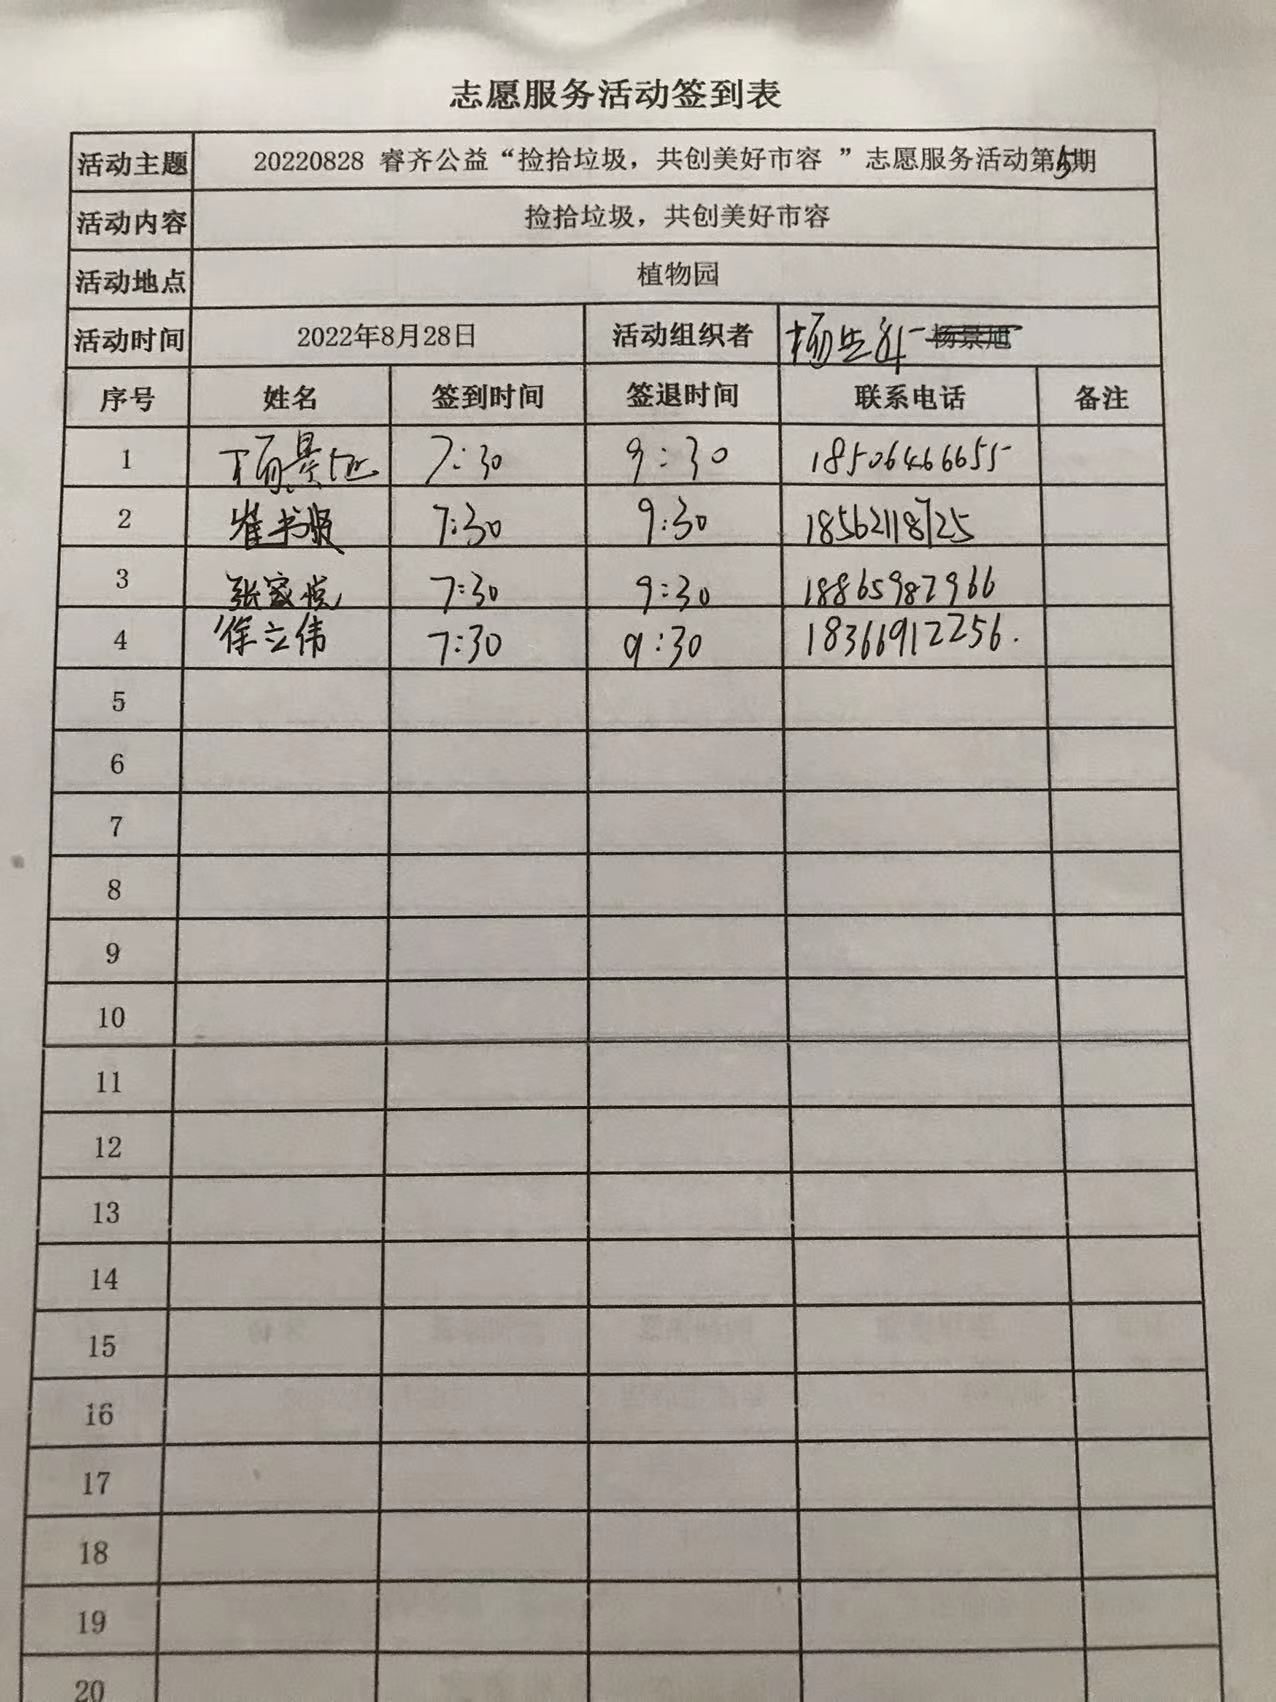 志愿服务活动签到表
活动主题 20220828 睿齐公益“捡拾垃圾，共创美好市容 ”志愿服务活动第5期
活动内容 捡拾垃圾，共创美好市容
活动地点 植物园
活动时间 2022年8月28日 活动组织者 杨景旭
序号 姓名 签到时间 签退时间 联系电话 备注
1 7:30 9:30 18506466655
2 崔 7:30 9:30 18562118725
3 张家悦 7:30 9:30 18865987966
4 徐立伟 7:30 9:30 18366912256.
5
6
7
8
9
10
11
12
13
14
15
16
17
18
19
20